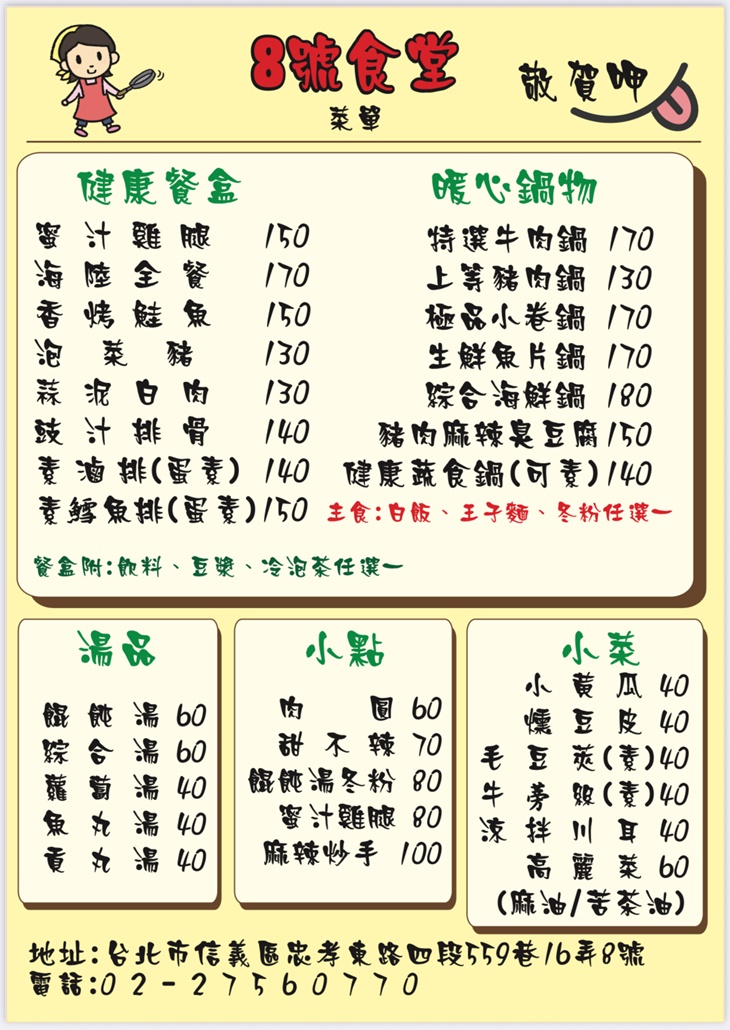 8號食堂
菜單
敬賀呷
健康餐盒
蜜汁雞腿 150
海陸全餐 170
香烤鮭魚 150
泡菜豬 130
蒜泥白肉 130
豉汁排骨 140
素滷排(蛋素) 140
素鱈魚排(蛋素)150
餐盒附:飲料、豆漿、冷泡茶任選一
暖心鍋物
特選牛肉鍋 170
上等豬肉鍋 130
極品小卷鍋 170
生鮮魚片鍋 170
綜合海鮮鍋 180
豬肉麻辣臭豆腐150
健康蔬食鍋(可素)140
主食:白飯、王子麵、冬粉任選一
湯品
餛飩湯 60
綜合湯 60
蘿蔔湯 40
魚丸湯 40
貢丸湯 40
小點
肉圓 60
甜不辣 70
餛飩湯冬粉 80
蜜汁雞腿 80
麻辣炒手 100
小菜
小黃瓜 40
燻豆皮 40
毛豆莢(素)40
牛蒡絲(素)40
涼拌川耳 40
高麗菜 60
(麻油/苦茶油)
地址:台北市信義區忠孝東路四段559巷16弄8號
電話:02-27560770